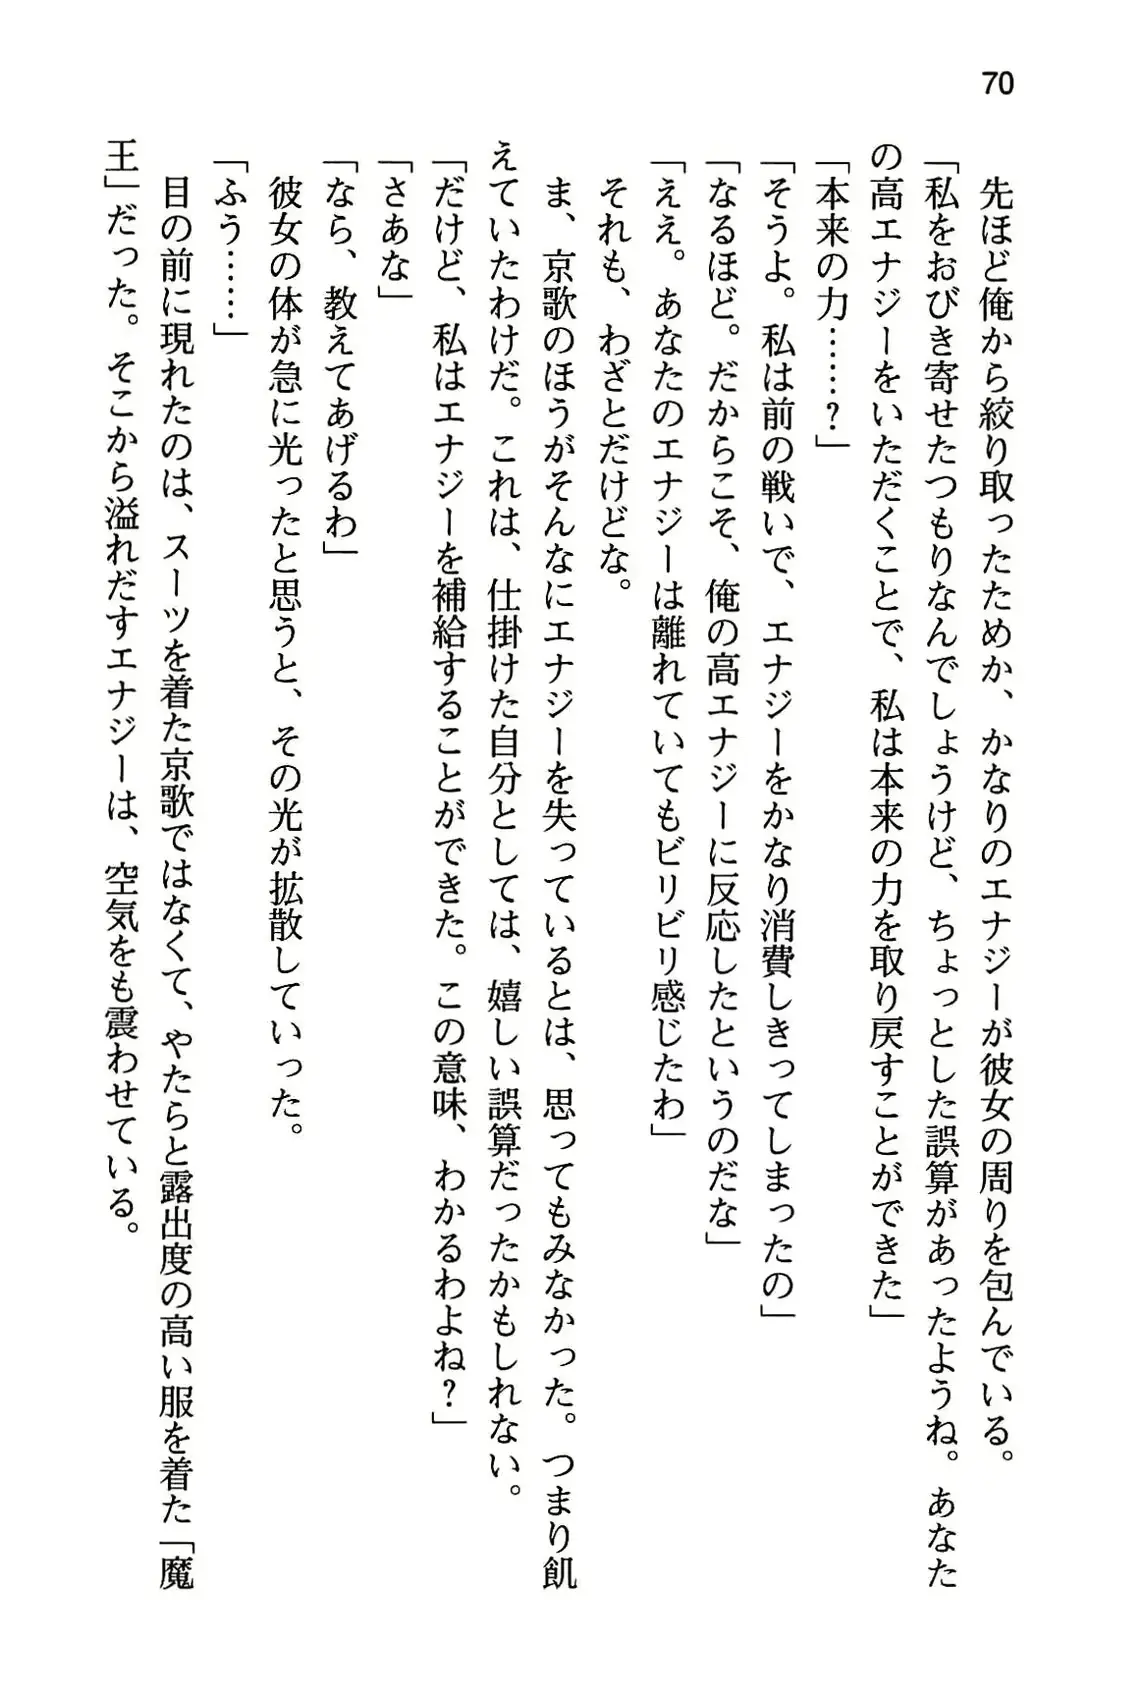 70
先ほど俺から絞り取ったためか、かなりのエナジーが彼女の周りを包んでいる。
「私をおびき寄せたつもりなんでしょうけど、ちょっとした誤算があったようね。あなた
の高エナジーをいただくことで、私は本来の力を取り戻すことができた」
「本来の力……？」
「そうよ。私は前の戦いで、エナジーをかなり消費しきってしまったの」
「なるほど。だからこそ、俺の高エナジーに反応したというのだな」
「ええ。あなたのエナジーは離れていてもビリビリ感じたわ」
それも、わざとだけどな。
ま、京歌のほうがそんなにエナジーを失っているとは、思ってもみなかった。つまり飢
えていたわけだ。これは、仕掛けた自分としては、嬉しい誤算だったかもしれない。
「だけど、私はエナジーを補給することができた。この意味、わかるわよね？」
「さあな」
「なら、教えてあげるわ」
彼女の体が急に光ったと思うと、その光が拡散していった。
「ふう……」
目の前に現れたのは、スーツを着た京歌ではなくて、やたらと露出度の高い服を着た「魔
王」だった。そこから溢れだすエナジーは、空気をも震わせている。